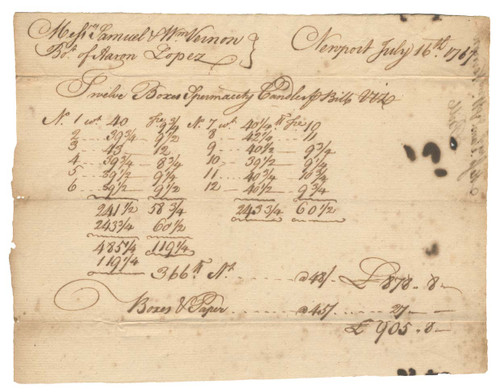 Mess.rs Samuel & Wm Vernon
Bo.t of Aaron Lopez
Newport July 16th. 1767
Twelve Boxes Spermacety Candles
No. 1 wt. 40 9 3/4 No. 7 wt. 40 1/4 10
2 39 3/4 9 1/2 8 42 1/2 11
3 43 12 9 40 1/2 9 3/4
4 39 3/4 8 3/4 10 39 1/2 9 1/4
5 39 1/2 9 1/4 11 40 3/4 10 3/4
6 39 1/2 9 1/2 12 40 1/2 9 3/4
241 1/2 58 3/4 243 3/4 60 1/2
243 3/4 60 1/2
485 1/4 119 1/4
119 1/4
366 lb Nt a 48/ £878. 8
Boxes & Paper a 45/ 27
£905. 8